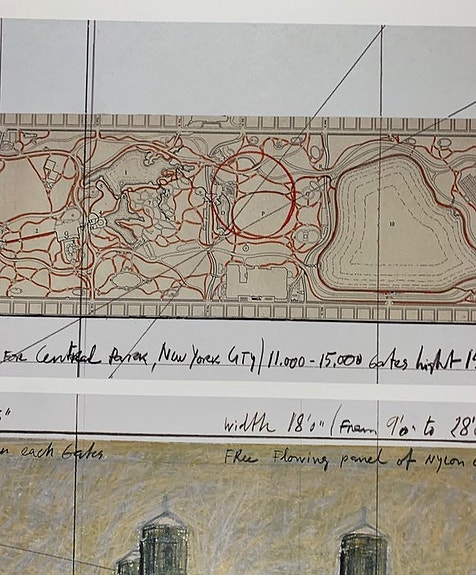 FOR Central Park, New York CITY / 11.000 - 15.000 Gates hight 1
width 18'0" (From 9'0" to 28'
n each Gates
FRee Flowing panel of Nylon